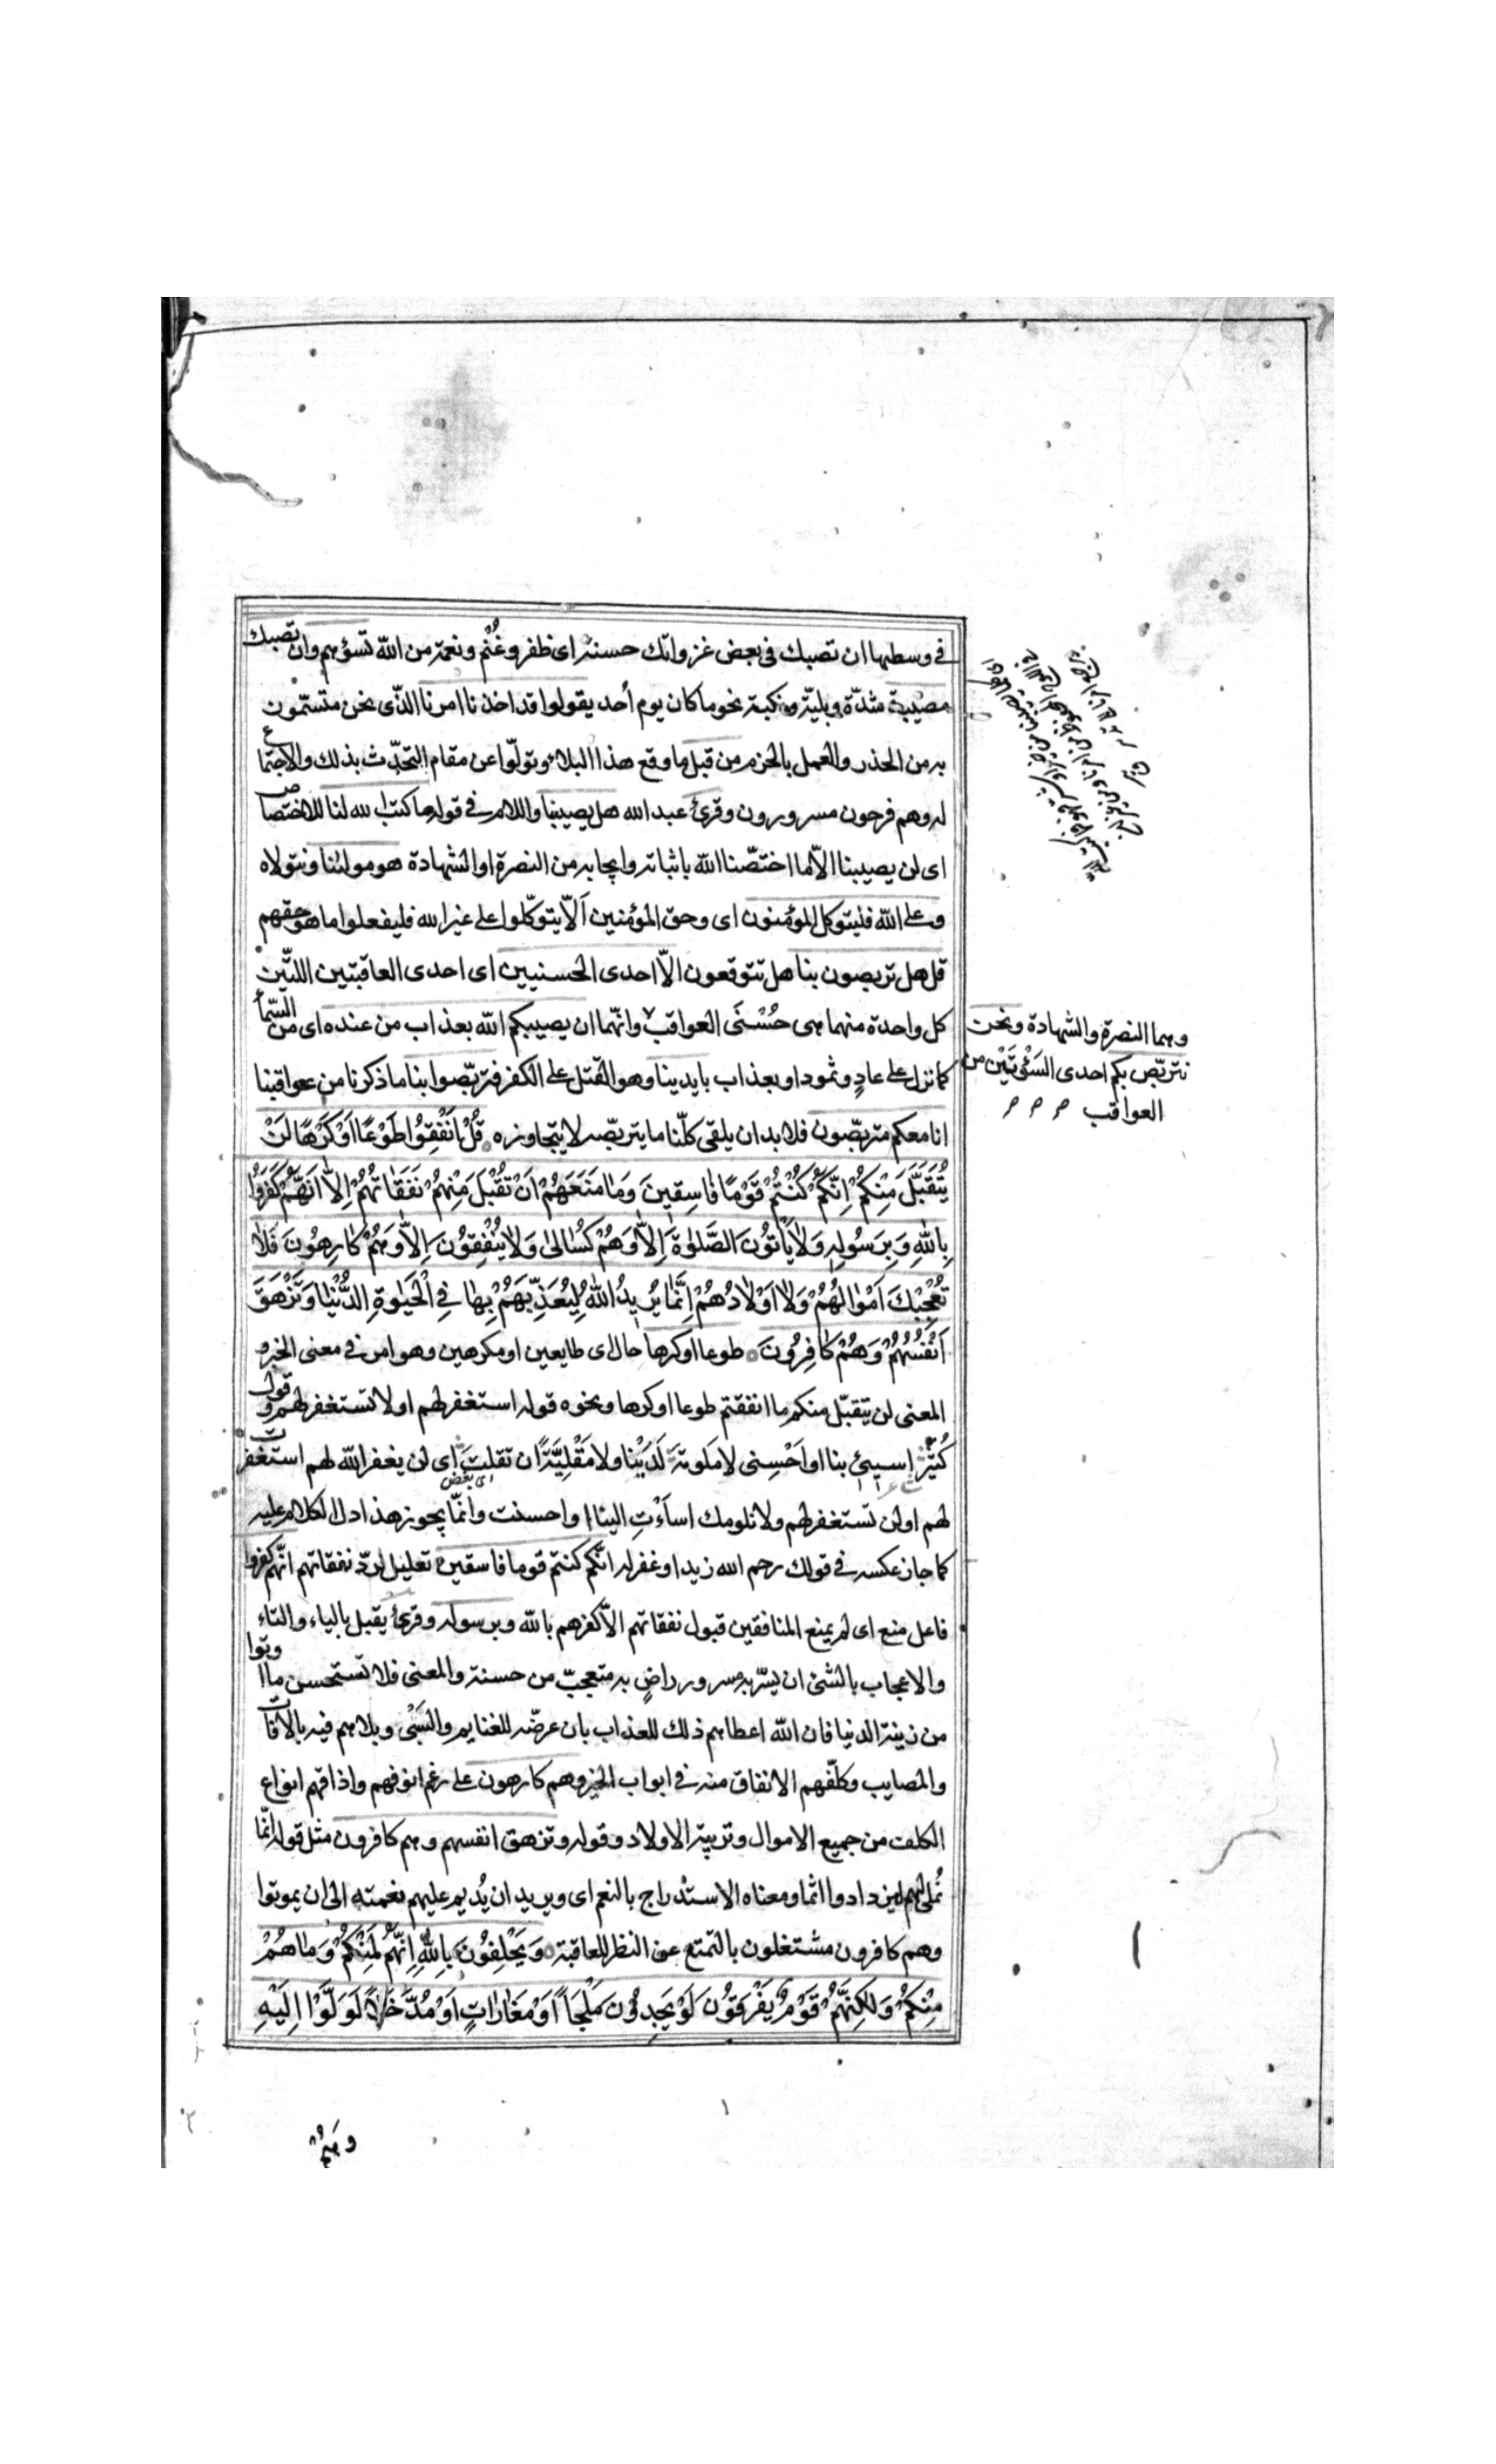 في وسطها ان تصبك في بعض غزواتك حسنة اى ظفر وغُنْم ونعمة من الله تسؤهم وان تصبك
مصيبة شدّة وبليّة ونكبة نحو ما كان يوم أحد يقولوا قد اخذنا امرنا الذّى نحن متسّمون
به من الحذر والعمل بالحزم من قبل ما وقع هذا البلاء وتولّوا عن مقام التحدّث بذلك والاجتماع
له وهم فرحون مسرورون وقرئ عبد الله هل يصيبنا واللام في قوله ما كتب الله لنا للاختصاص
اى لن يصيبنا الاّ ما اختصّنا الله باثباته وايجابه من النصرة او الشهادة هو مولٰنا ونتولاه
وعلى الله فليتوكل المؤمنون اى وحق المؤمنين اَلاّ يتوكّلوا على غير الله فليفعلوا ما هو حقهم
قل هل تربصون بنا هل تتوقعون الاّ احدى الحسنيين اى احدى العاقبتين اللتّين
كل واحدة منهما هى حُسْنَى العواقب وانّما ان يصيبكم الله بعذاب من عنده اى من السّماء
كما نزل على عادٍ وثمود او بعذاب بايدينا وهو القتل على الكفر فتربّصوا بنا ما ذكرنا من عواقبنا
انا معكم متربّصون فلا بد ان يلقى كلّنا ما يتربّصه لا يتجاوزه قُلْ اَنْفِقُوُا طَوْعًا اَوْ كَرْهًا لَنْ
يُتَقَبَّلَ مِنْكُمْ اِنَّكُمْ كُنْتُمْ قَوْمًا فَاسِقِينَ وَمَا مَنَعَهُمْ اَنْ تُقْبَلَ مِنْهُمْ نَفَقَاتُهُمْ اِلاَّ اَنَّهُمْ كَفَرُوا
بِاللهِ وَبِرَسُولِهِ وَلاٰ يَأْتُوُنَ الصَّلٰوةَ اِلاَّ وَهُمْ كُسٰالىٰ وَلاٰ يُنْفِقُوُنَ اِلاَّ وَهُمْ كٰارِهُونَ فَلاٰ
تُعْجِبْكَ اَمْوٰالُهُمْ وَلاٰ اَوْلاٰدُهُمْ اِنَّمٰا يُرِيدُ اللهُ لِيُعَذِّبَهُمْ بِهٰا فِي الْحَيٰوةِ الدُّنْيٰا وَتَزْهَقَ
اَنْفُسُهُمْ وَهُمْ كٰافِرُونَ طوعا او كرها حال اى طايعين او مكرهين وهو امر في معنى الخبر و
المعنى لن يتقبّل منكم ما انفقتم طوعا او كرها ونحوه قوله استغفر لهم او لا تستغفر لهم وقول
كُثَيِّر اسيئى بنا او اَحْسِنى لا مَلومة لَدَيْنا ولا مَقْلِيَّةً ان تقلت اى لن يغفر الله لهم استغفرت
اى تبغض
لهم او لن تستغفر لهم ولا نلومك اسأتِ الينا او احسنت وانّما يجوز هذا اذ دل الكلام عليه
كما جاز عكسه في قولك رحم الله زيدا وغفر له انّكم كنتم قوما فاسقين تعليل لردّ نفقاتهم انّهم كفروا
فاعل منع اى لم يمنع المنافقين قبول نفقاتهم الاّ كفرهم بالله وبرسوله وقرئ يقبل بالياء والتاء
والاعجاب بالشئ ان يسّر به سرور راضٍ به متعجبّ من حسنه والمعنى فلا تستحسن ما اوتوا
من زينة الدنيا فان الله اعطاهم ذلك للعذاب بان عرضّه للغنايم والسَبْى وبلاهم فيه بالافات
والمصايب وكلّفهم الانفاق منه في ابواب الخير وهم كارهون على رغم انوفهم واذاقهم انواع
الكلف من جميع الاموال وتربية الاولاد وقوله وتزهق انفسهم وهم كافرون مثل قوله انّما
نُملى لهم ليزدادوا اثما ومعناه الاستدراج بالنعم اى ويريد ان يُديم عليهم نعمته الى ان يموتوا
وهم كافرون مشتغلون بالتمتع عن النظر للعاقبة وَيَحْلِفُوُنَ بِاللهِ اِنَّهُمْ لَمِنْكُمْ وَمٰا هُمْ
مِنْكُمْ وَلٰكِنَّهُمْ قَوْمٌ يَفْرَقُوُنَ لَوْ يَجِدُونَ مَلْجَأً اَوْ مَغٰارٰاتٍ اَوْ مُدَّخَلاً لَوَلَّوْا اِلَيْهِ
وهما النصرة والشهادة ونحن
نتربّص بكم احدى السَوْئَتَيْن من
العواقب
وَهُمْ